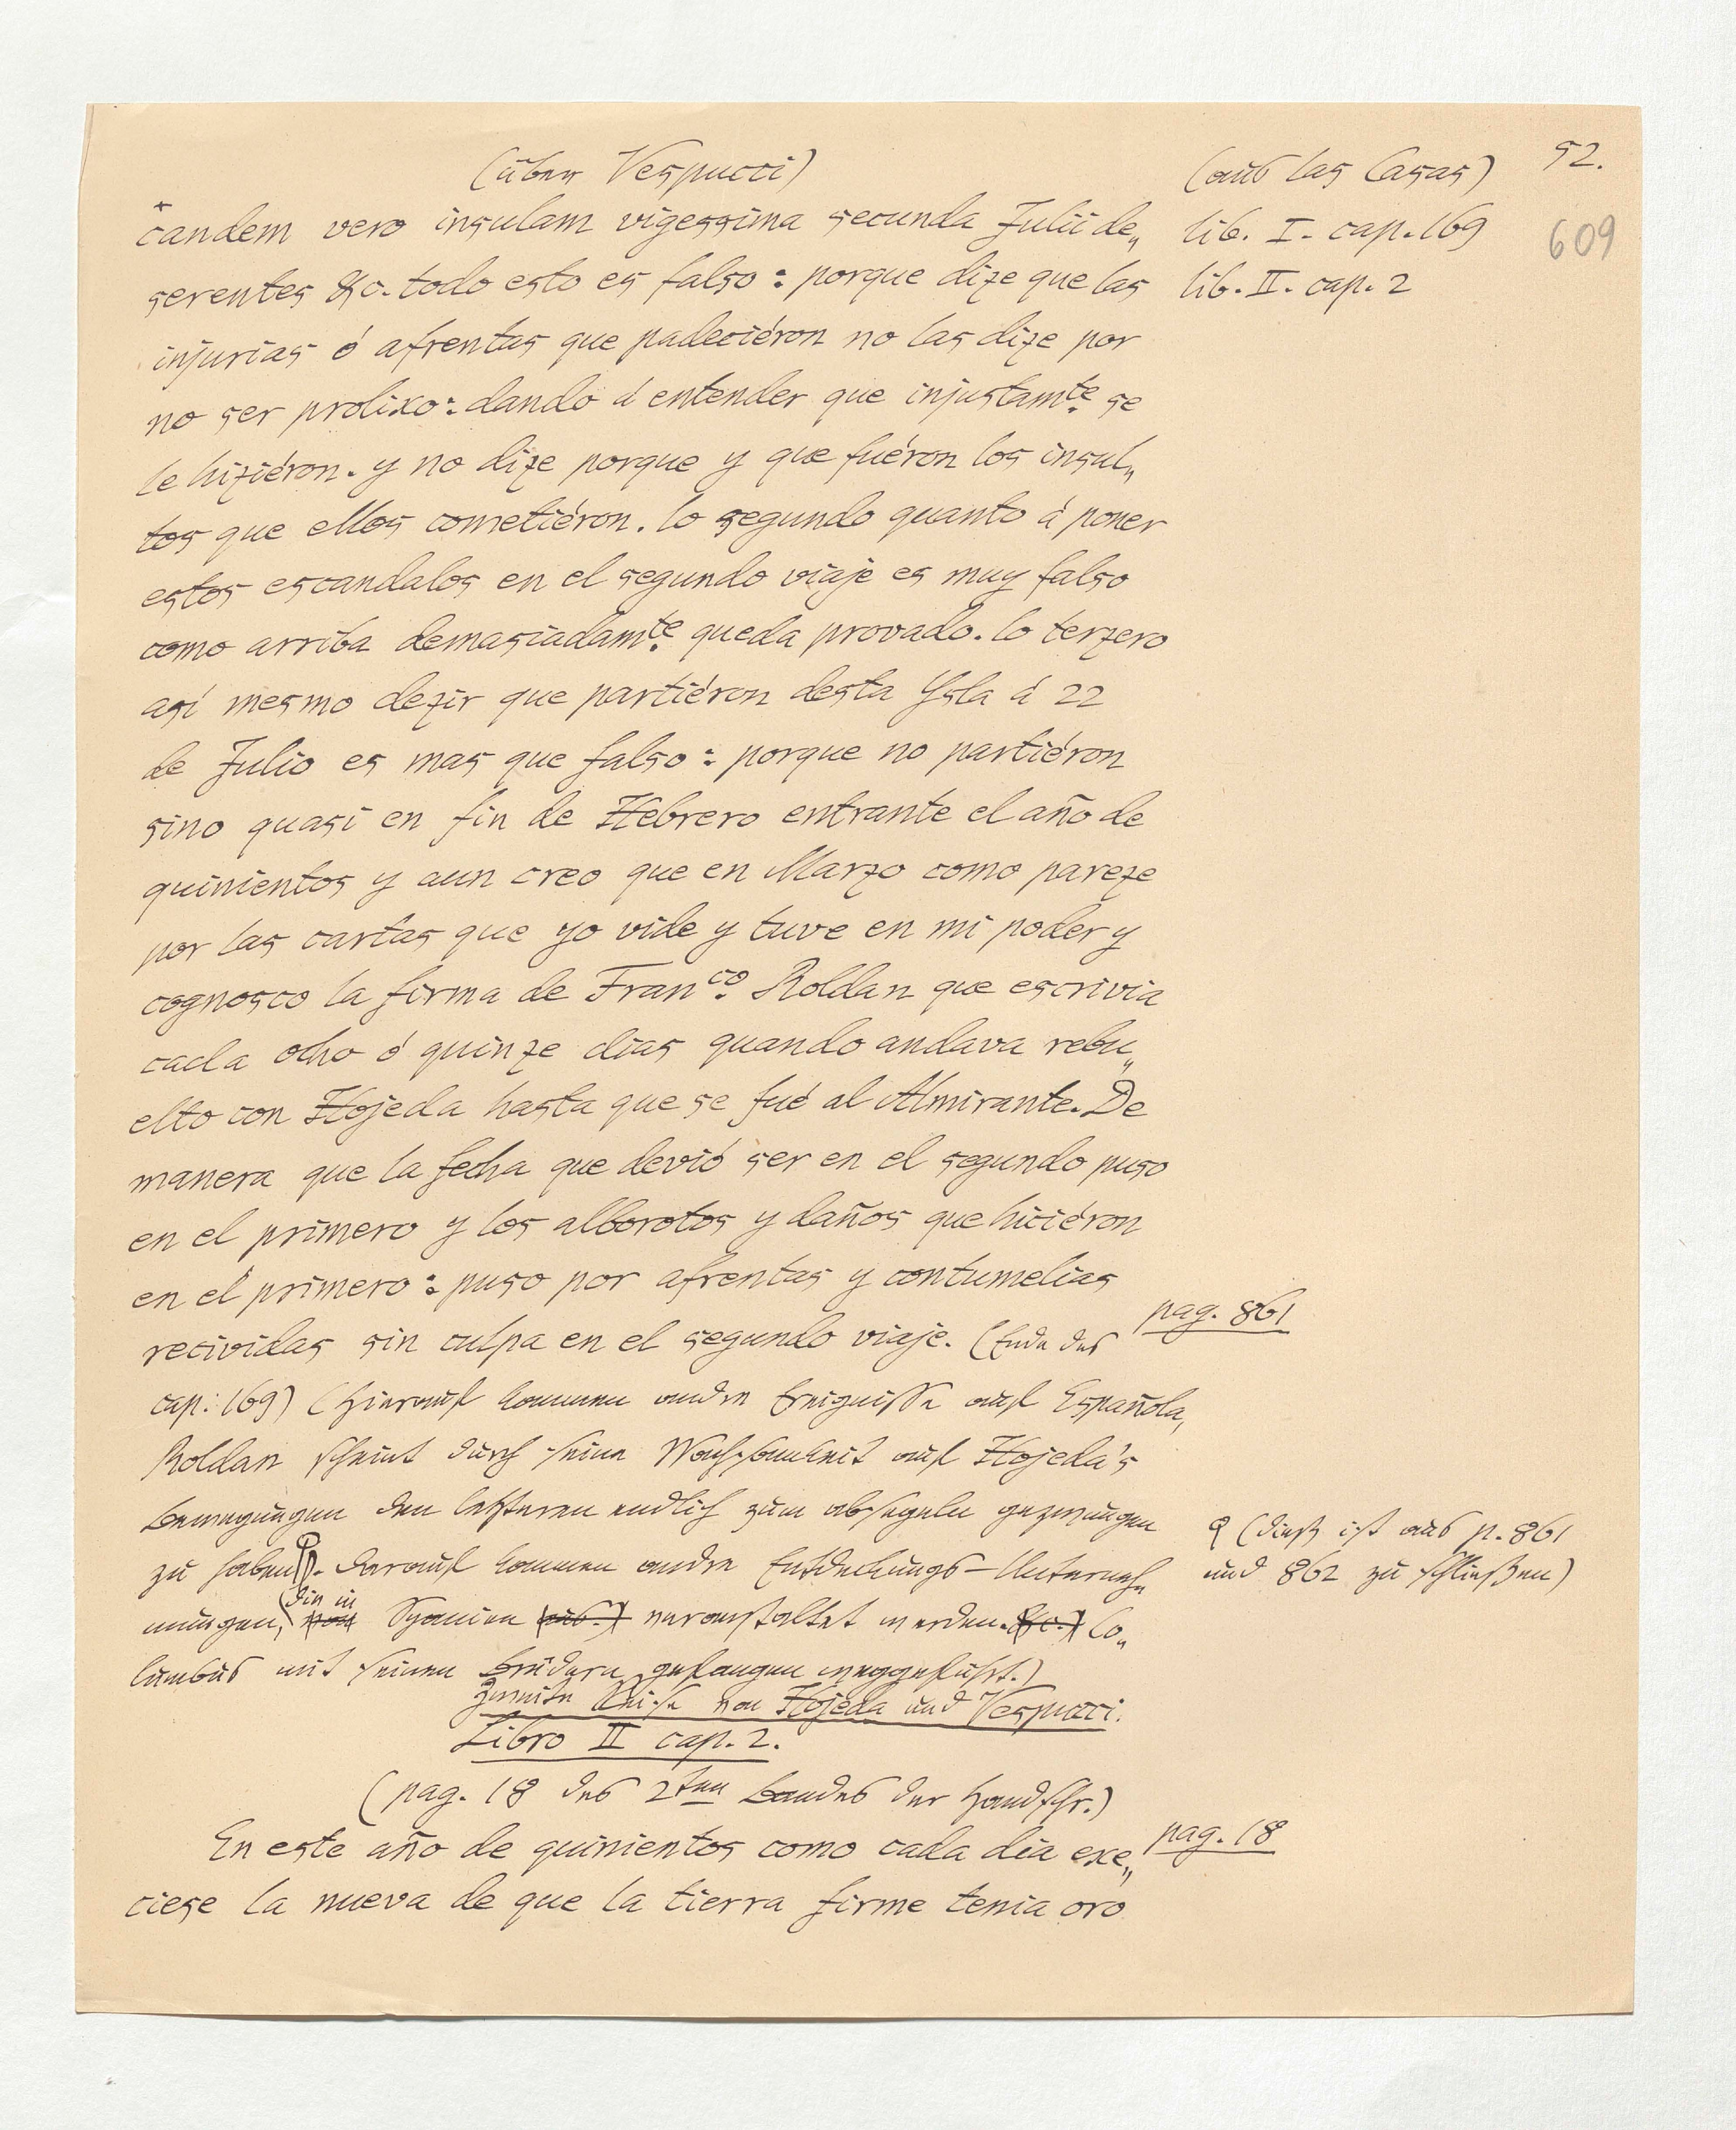 (über Vespucci)
(aus las Casas)
52.
609
candem vero insulam vigessima secunda Julii de„
lib. I. cap. 169
serentes &c. todo esto es falso: porque dize que las
lib. II. cap. 2
injurias ó afrentas que padeciéron no las dize por
no ser prolixo: dando á entender que injustamte. se
le hiziéron. y no dize porque y que fuéron los insul„
tos que ellos cometiéron. lo segundo quanto á poner
estos escandalos en el segundo viaje es muy falso
como arriba demasiadamte. queda provado. lo terzero
así mesmo dezir que partiéron desta Ysla á 22
de Julio es mas que falso: porque no partiéron
sino quasi en fin de Hebrero entrante el año de
quinientos y aun creo que en Marzo como pareze
por las cartas que yo vide y tuve en mi poder y
cognosco la firma de Franco. Roldan que escrivia
cada ocho ó quinze dias quando andava rebu„
elto con Hojeda hasta que se fué al Almirante. De
manera que la fecha que devió ser en el segundo puso
en el primero y los alborotos y daños que hiciéron
en el primero: puso por afrentas y contumelias
recividas sin culpa en el segundo viaje. (Ende des
pag. 861
cap: 169) (Hierauf kommen andre Ereignisse auf Española,
Roldan scheint durch seine Wachsamkeit auf Hojeda's
Bewegungen den letzteren endlich zum absegeln gezwungen
zu haben. Darauf kommen andre Entdeckungs-Unterneh„
(dieß ist aus p. 861
und 862 zu schließen)
mungen, die in Spanien veranstaltet werden. Co„
lumbus mit seinen Brüdern gefangen weggeführt.)
Zweite Reise von Hojeda und Vespucci.
Libro II cap. 2.
(pag. 18 des 2ten Bandes der Handschr.)
En este año de quinientos como cada dia cre„
pag. 18
ciese la nueva de que la tierra firme tenia oro